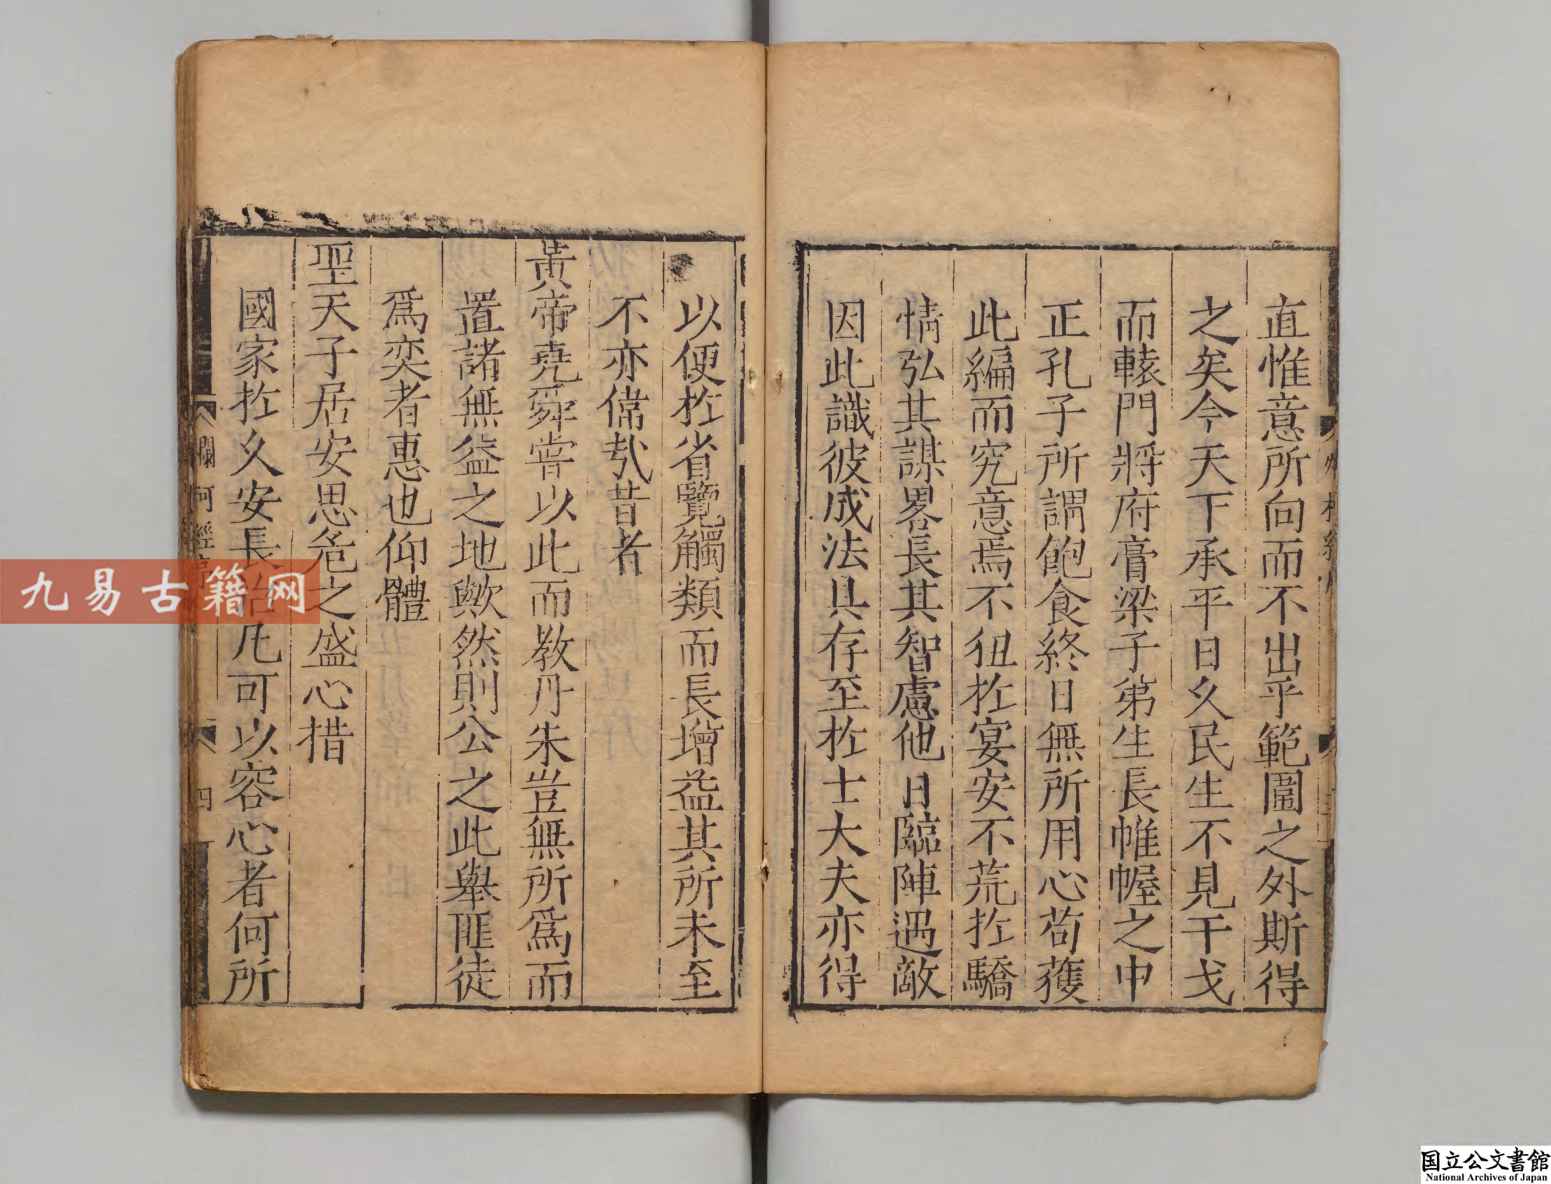 直惟意所向而不出乎範圍之外斯得
之矣今天下承平日久民生不見干戈
而轅門將府膏粱子弟生長帷幄之中
正孔子所謂飽食終日無所用心苟獲
此編而究意焉不狃於宴安不荒於驕
情弘其謀畧長其智慮他日臨陣遇敵
因此識彼成法具存至於士大夫亦得
以便於省覽觸類而長增益其所未至
不亦偉哉昔者
黃帝堯舜嘗以此而敎丹朱豈無所爲而
置諸無益之地歟然則公之此舉匪徒
爲奕者惠也仰體
聖天子居安思危之盛心措
國家於久安長治凡可以容心者何所
爛柯經序
四
九易古籍网
国立公文書館
National Archives of Japan